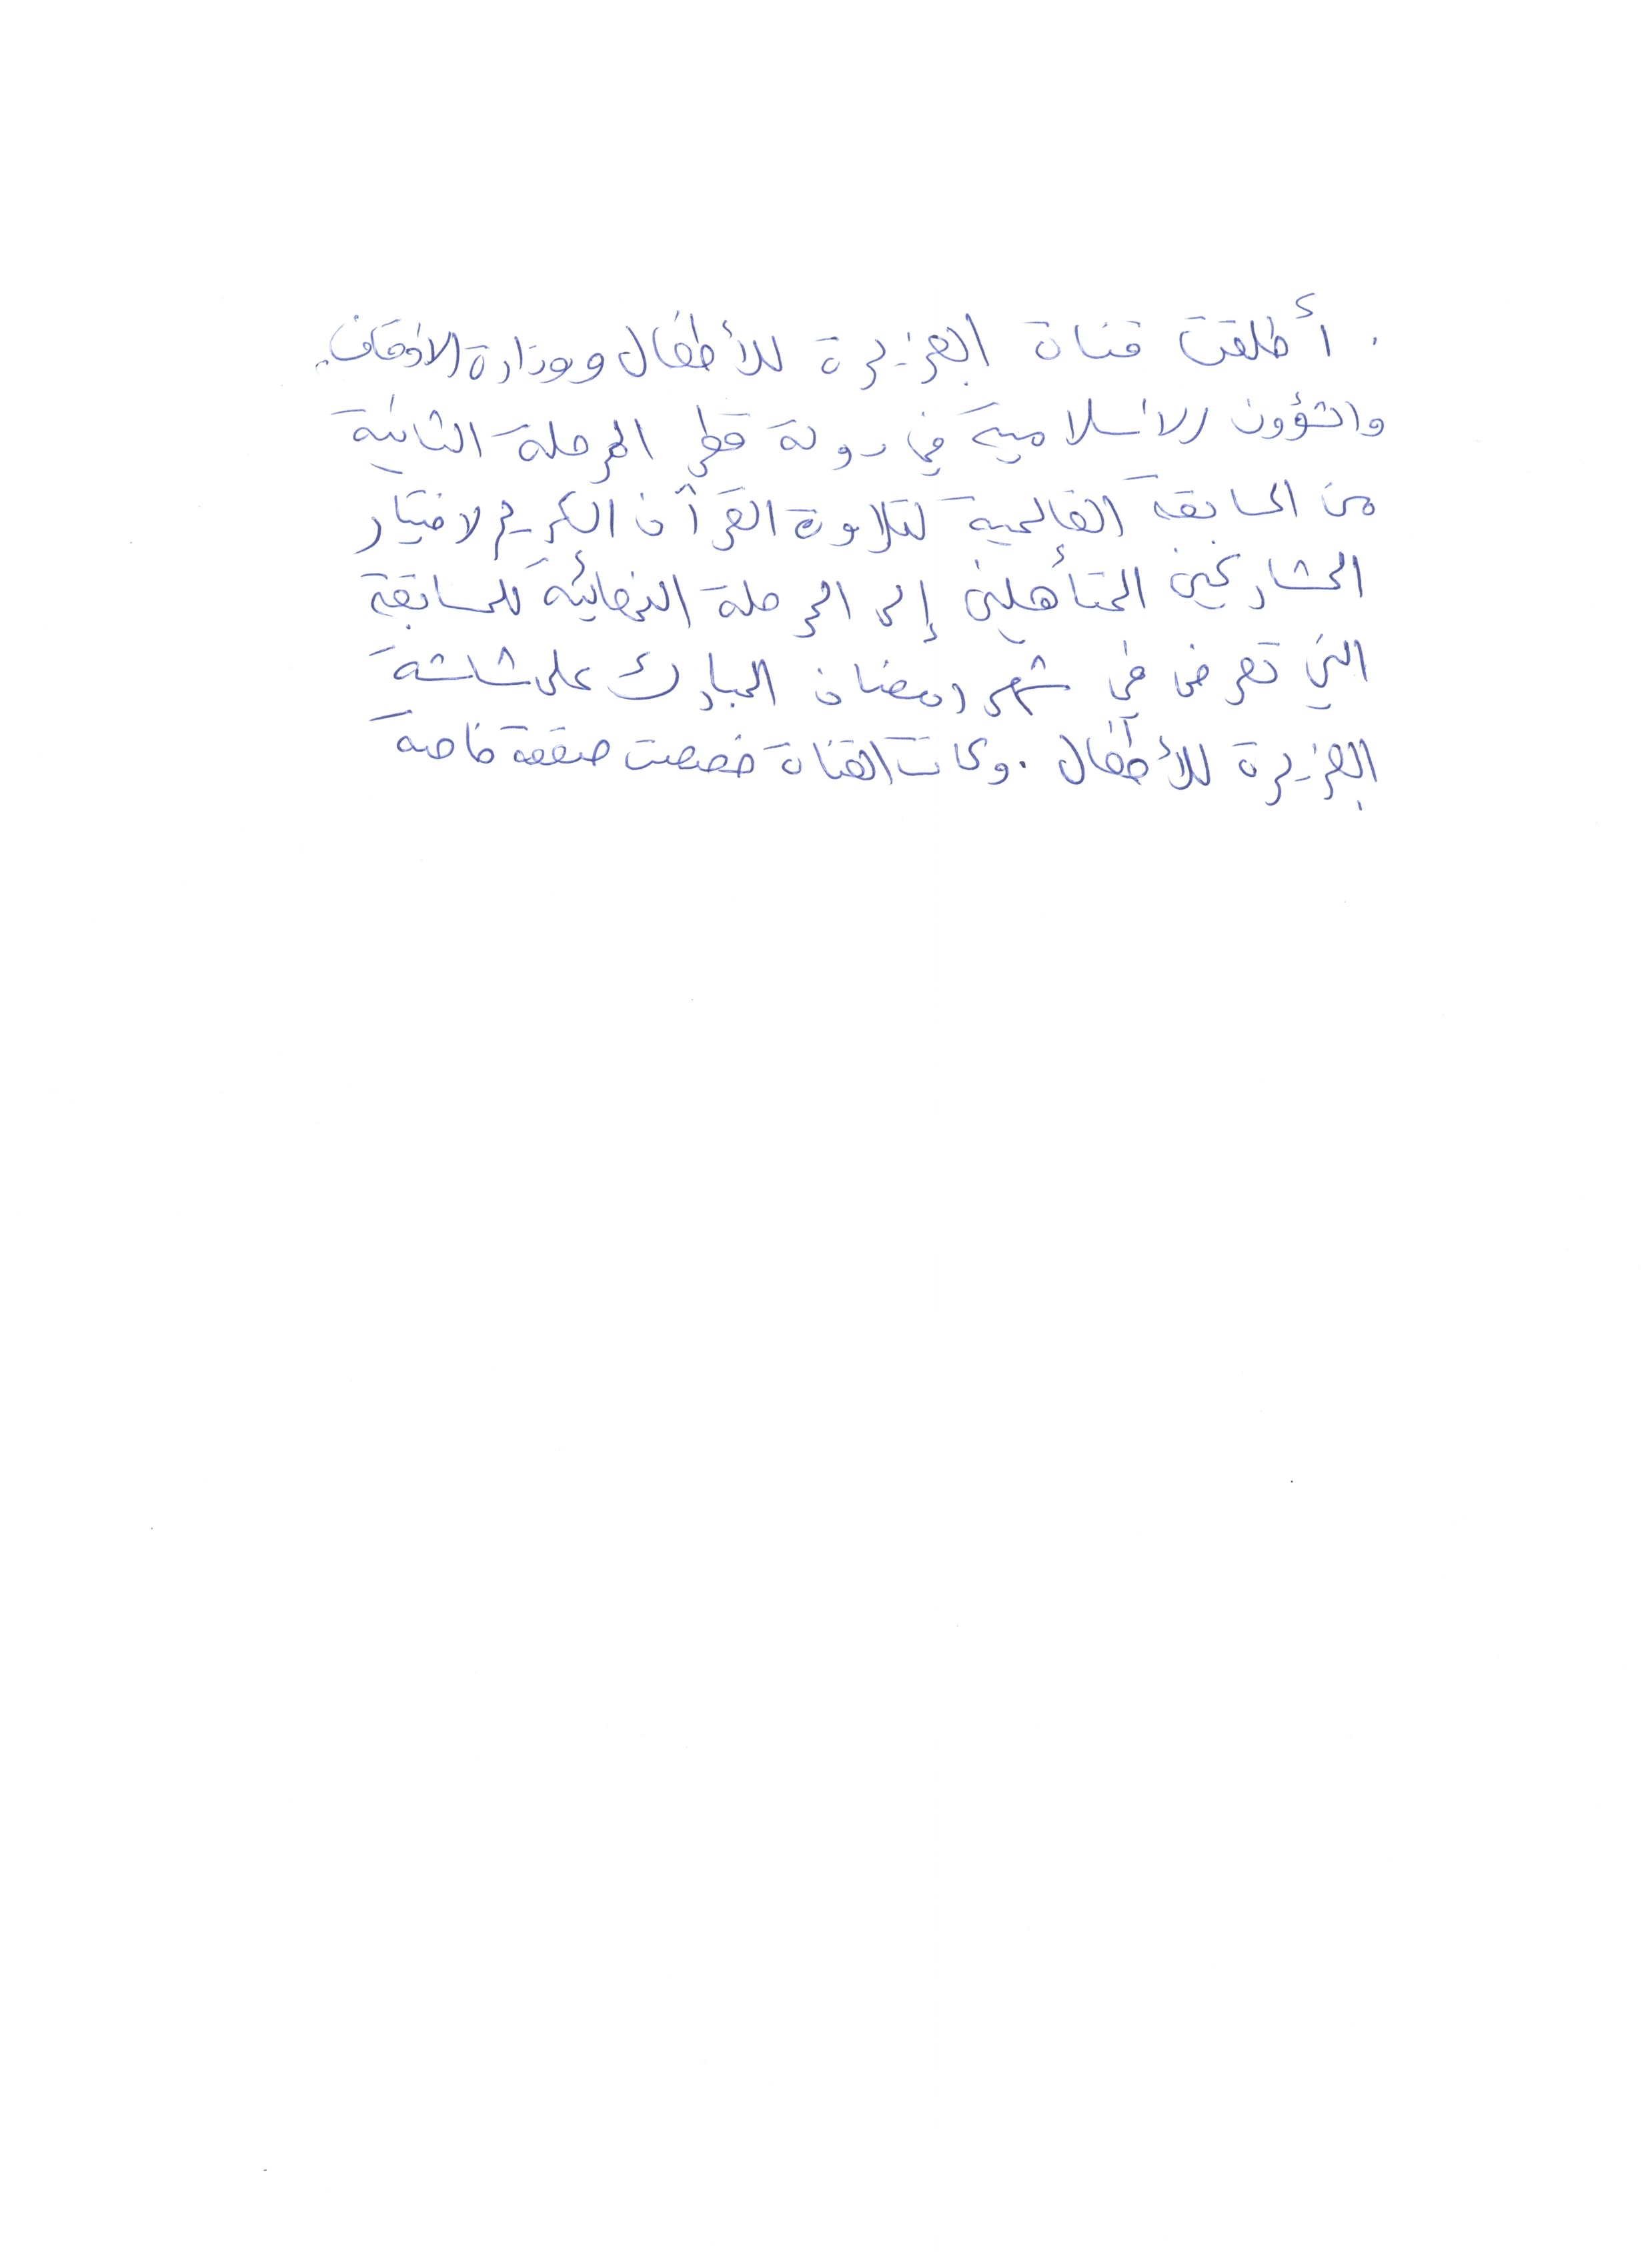 . أطلقت قناة الجزيرة للأطفال ووزارة الاوقاف
والشؤون الاسلامية في دولة قطر المرحلة الثانية
من المسابقة العالمية لتلاوة القرآن الكريم لاختيار
المشاركين المتأهلين إلى المرحلة النهائية للمسابقة
التي تعرض في شهر رمضان المبارك على شاشة
الجزيرة للأطفال . وكانت القناة خصصت صفقة خاصة